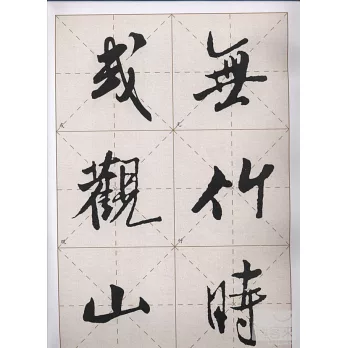 無竹時
或觀山